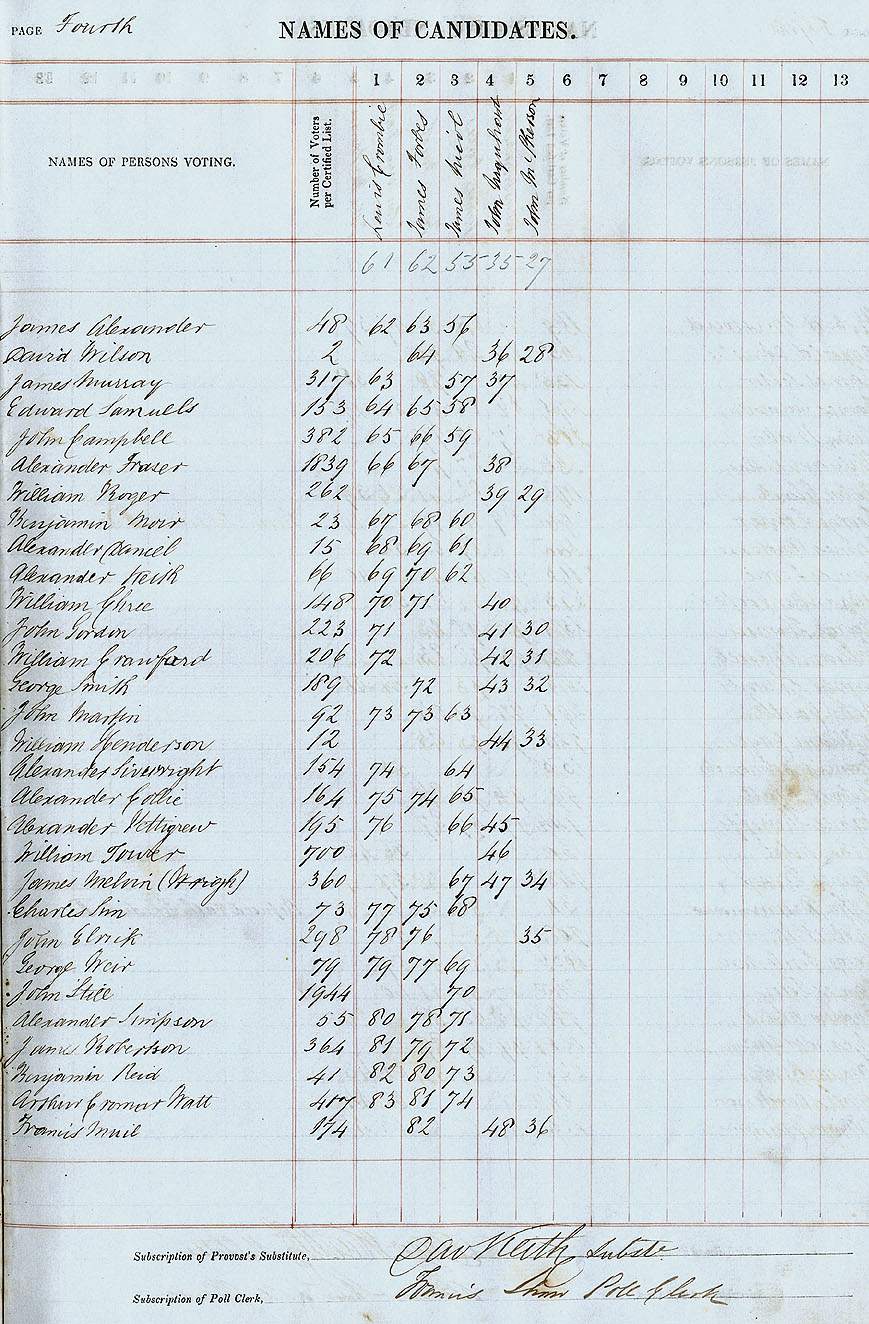 PAGE Fourth NAMES OF CANDIDATES.
1 2 3 4 5 6 7 8 9 10 11 12 13
NAMES OF PERSONS VOTING. Number of Voters per Certified List. Lewis Crombie James Forbes James Nicol John Urquhart John McPherson
61 62 55 35 27
James Alexander 48 62 63 56
David Wilson 2 64 36 28
James Murray 317 63 57 37
Edward Samuels 153 64 65 58
John Campbell 382 65 66 59
Alexander Fraser 1839 66 67 38
William Roger 262 39 29
Benjamin Moir 23 67 68 60
Alexander Daniel 15 68 69 61
Alexander Keith 66 69 70 62
William Chree 148 70 71 40
John Gordon 223 71 41 30
William Crawford 206 72 42 31
George Smith 189 72 43 32
John Martin 92 73 73 63
William Henderson 12 44 33
Alexander Sivewright 154 74 64
Alexander Collie 164 75 74 65
Alexander Pettigrew 195 76 66 45
William Tower 700 46
James Melvin (Wrigh) 360 67 47 34
Charles Sim 73 77 75 68
John Elrick 298 78 76 35
George Weir 79 79 77 69
John Still 1944 70
Alexander Simpson 55 80 78 71
James Robertson 364 81 79 72
Benjamin Reid 41 82 80 73
Arthur Cromar Watt 407 83 81 74
Francis Muil 174 82 48 36
Subscription of Provost's Substitute, Dav Keith Subste
Subscription of Poll Clerk, Francis Shaw Poll Clerk